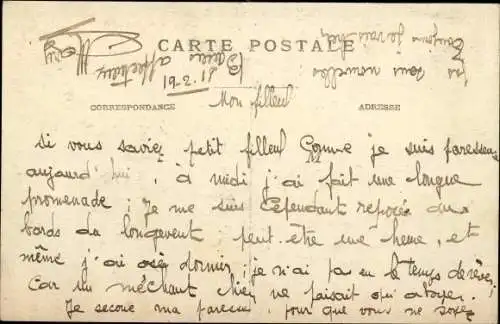 CARTE POSTALE
CORRESPONDANCE
ADRESSE
Mon filleul
Si vous saviez petit filleul Comme je suis paresseuse
aujourd'hui, à midi j'ai fait une longue
promenade ; Je me suis Cependant reposée au
bords du peut-être une heure, et
même j'ai osé dormir ; je n'ai pas eu le temps de rêver,
Car un méchant chien ne faisait qu'aboyer.
Je secoue ma paresse, pour que vous ne soyez
pas sans nouvelles
Toujours je vais bien
Baisers affectueux
21-2-19
Mary